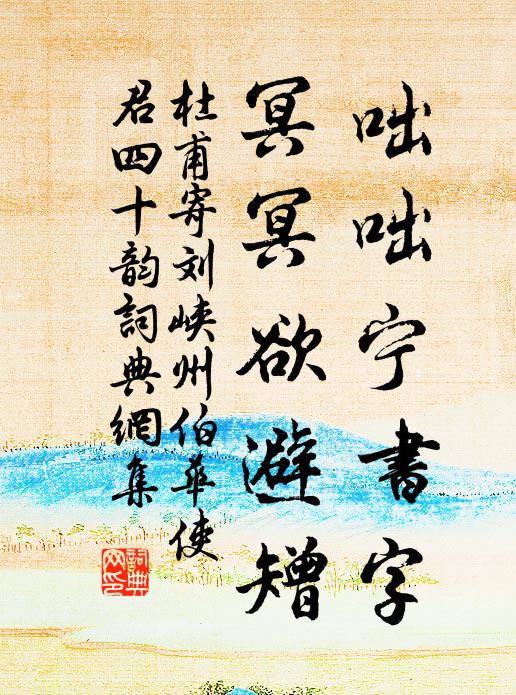 咄咄宁書字
冥冥欲避矰
杜甫寄刘峡州伯華使
君四十韵詞典網集
詞典网印